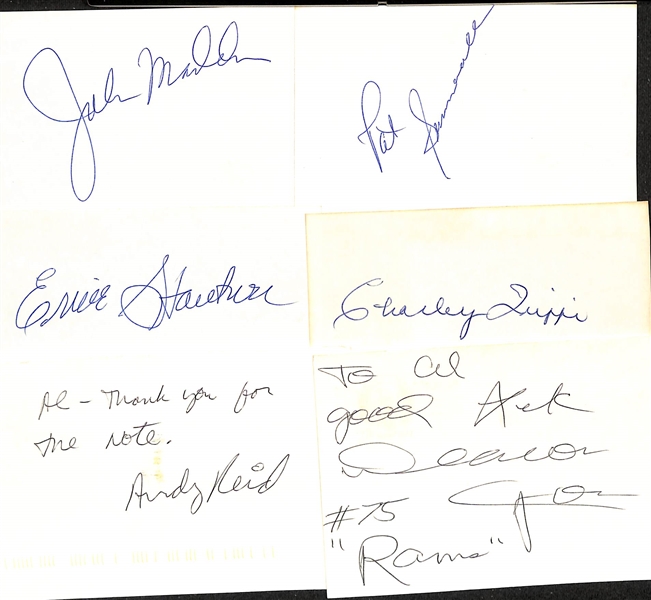 John Madden
Pat Summerall
Ernie Stautner
Charley Trippi
Al - Thank you for
the note.
Andy Reid
To Al
good luck
Deacon
Jones
#75
"Rams"